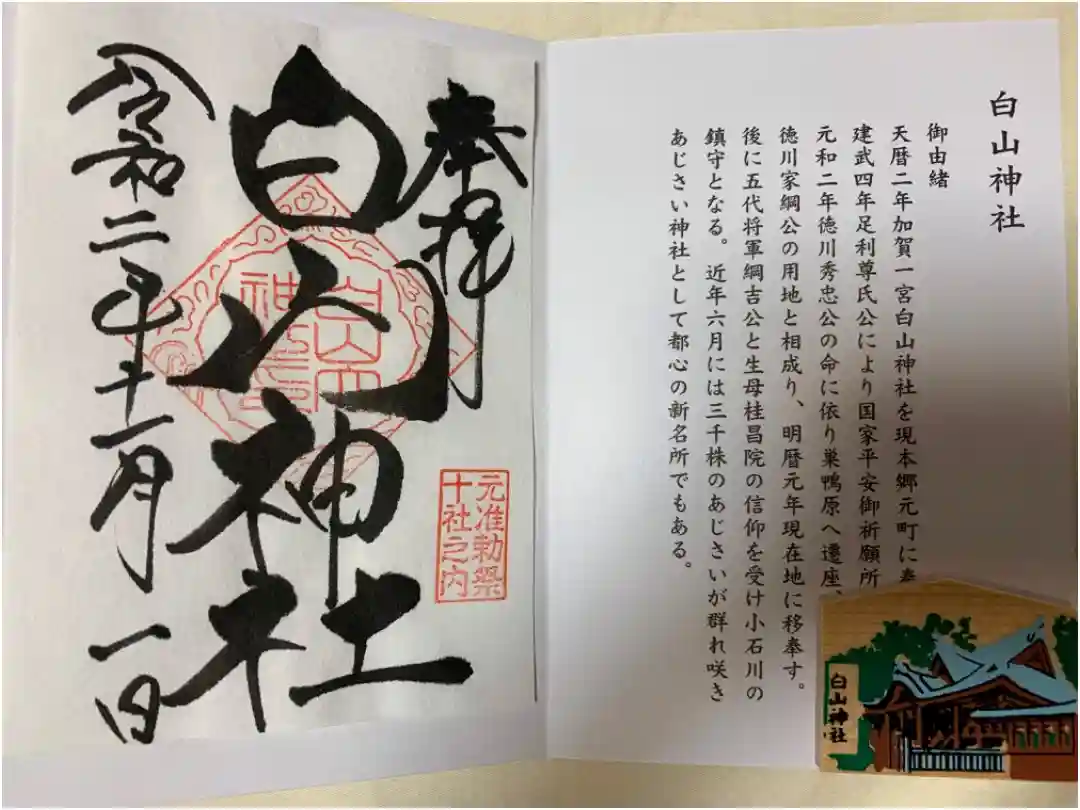 白山神社
御由緒
天暦二年加賀一宮白山神社を現本郷元町に
建武四年足利尊氏公により国家平安御祈願所
元和二年徳川秀忠公の命に依り巣鴨原へ遷座、
徳川家綱公の用地と相成り、明暦元年現在地に移奉す。
後に五代将軍綱吉公と生母桂昌院の信仰を受け小石川の
鎮守となる。近年六月には三千株のあじさいが群れ咲き
あじさい神社として都心の新名所でもある。
白山神社
奉拝
元准勅祭
十社之内
白山神社
令和二年十一月 一日